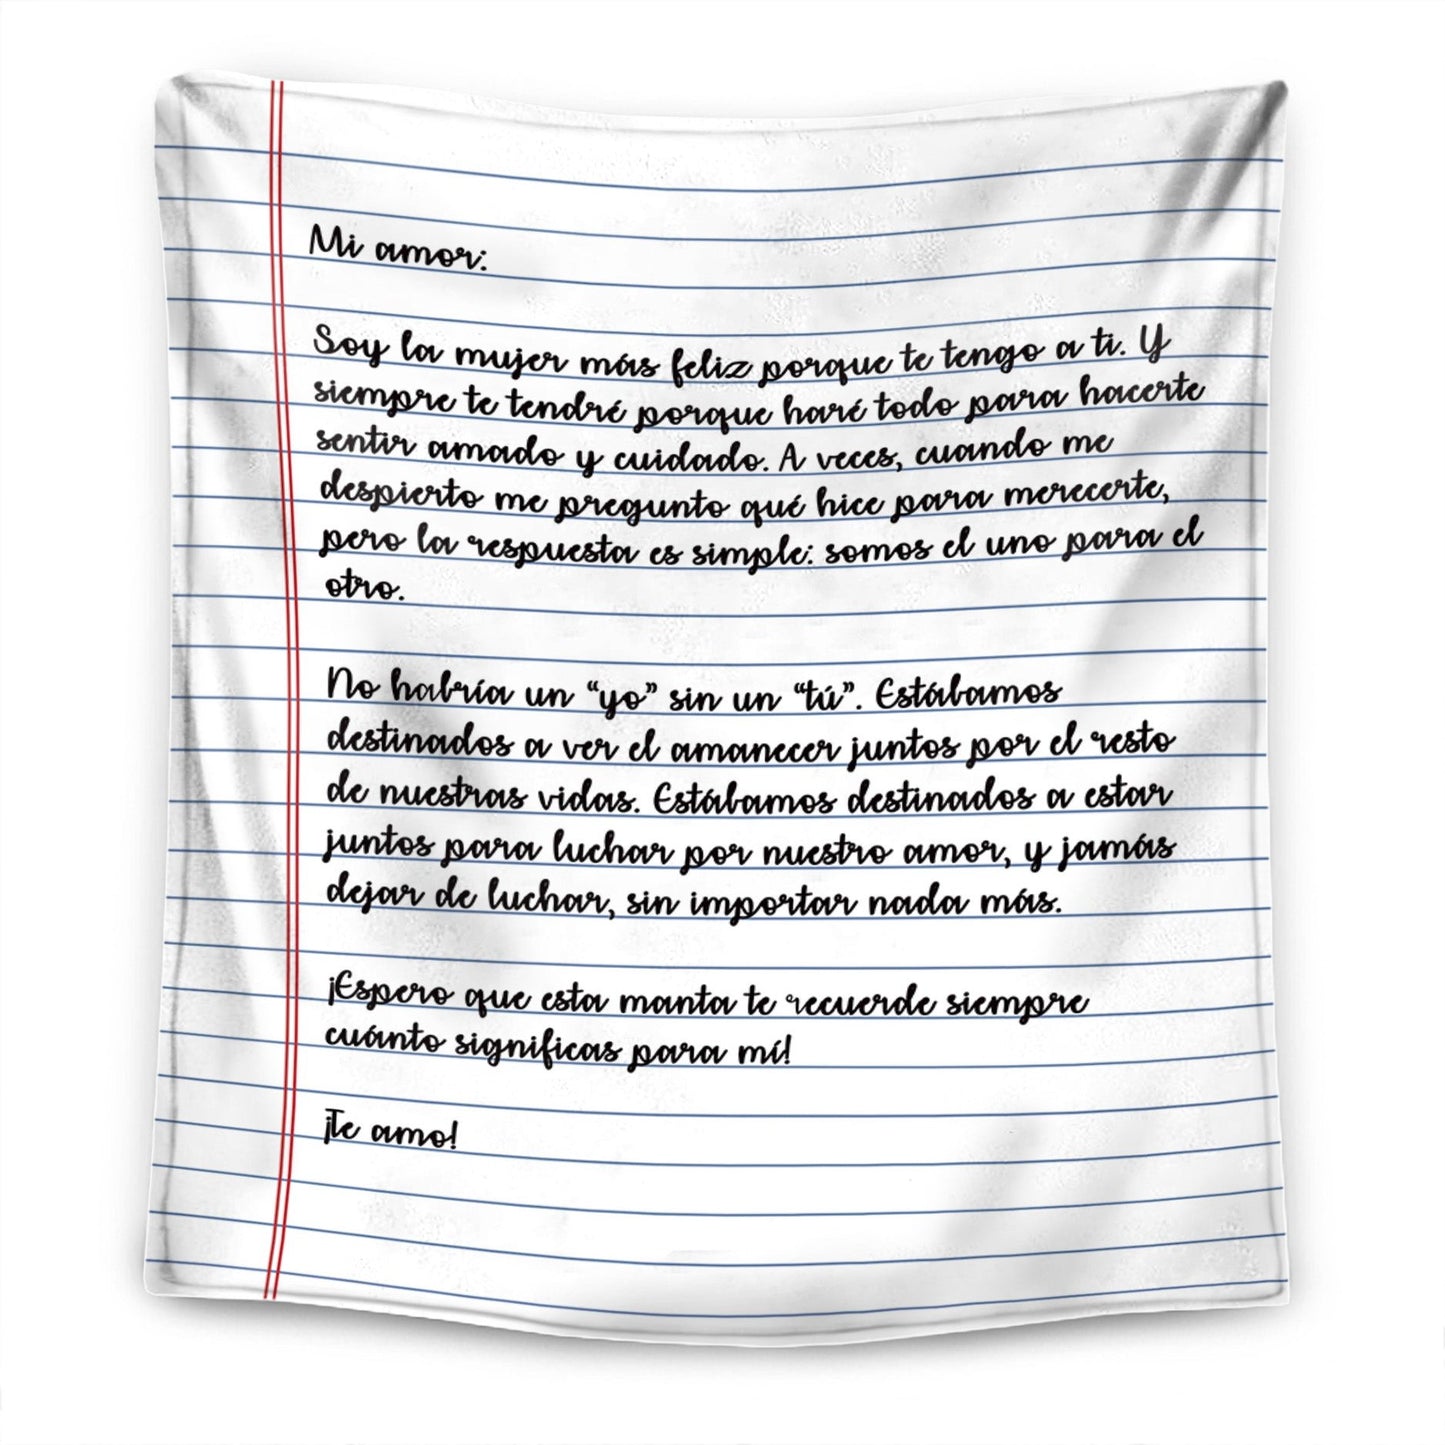 Mi amor:
Soy la mujer más feliz porque te tengo a ti. Y
siempre te tendré porque haré todo para hacerte
sentir amado y cuidado. A veces, cuando me
despierto me pregunto qué hice para merecerte,
pero la respuesta es simple: somos el uno para el
otro.
No habría un “yo” sin un “tú”. Estábamos
destinados a ver el amanecer juntos por el resto
de nuestras vidas. Estábamos destinados a estar
juntos para luchar por nuestro amor, y jamás
dejar de luchar, sin importar nada más.
¡Espero que esta manta te recuerde siempre
cuánto significas para mí!
¡Te amo!